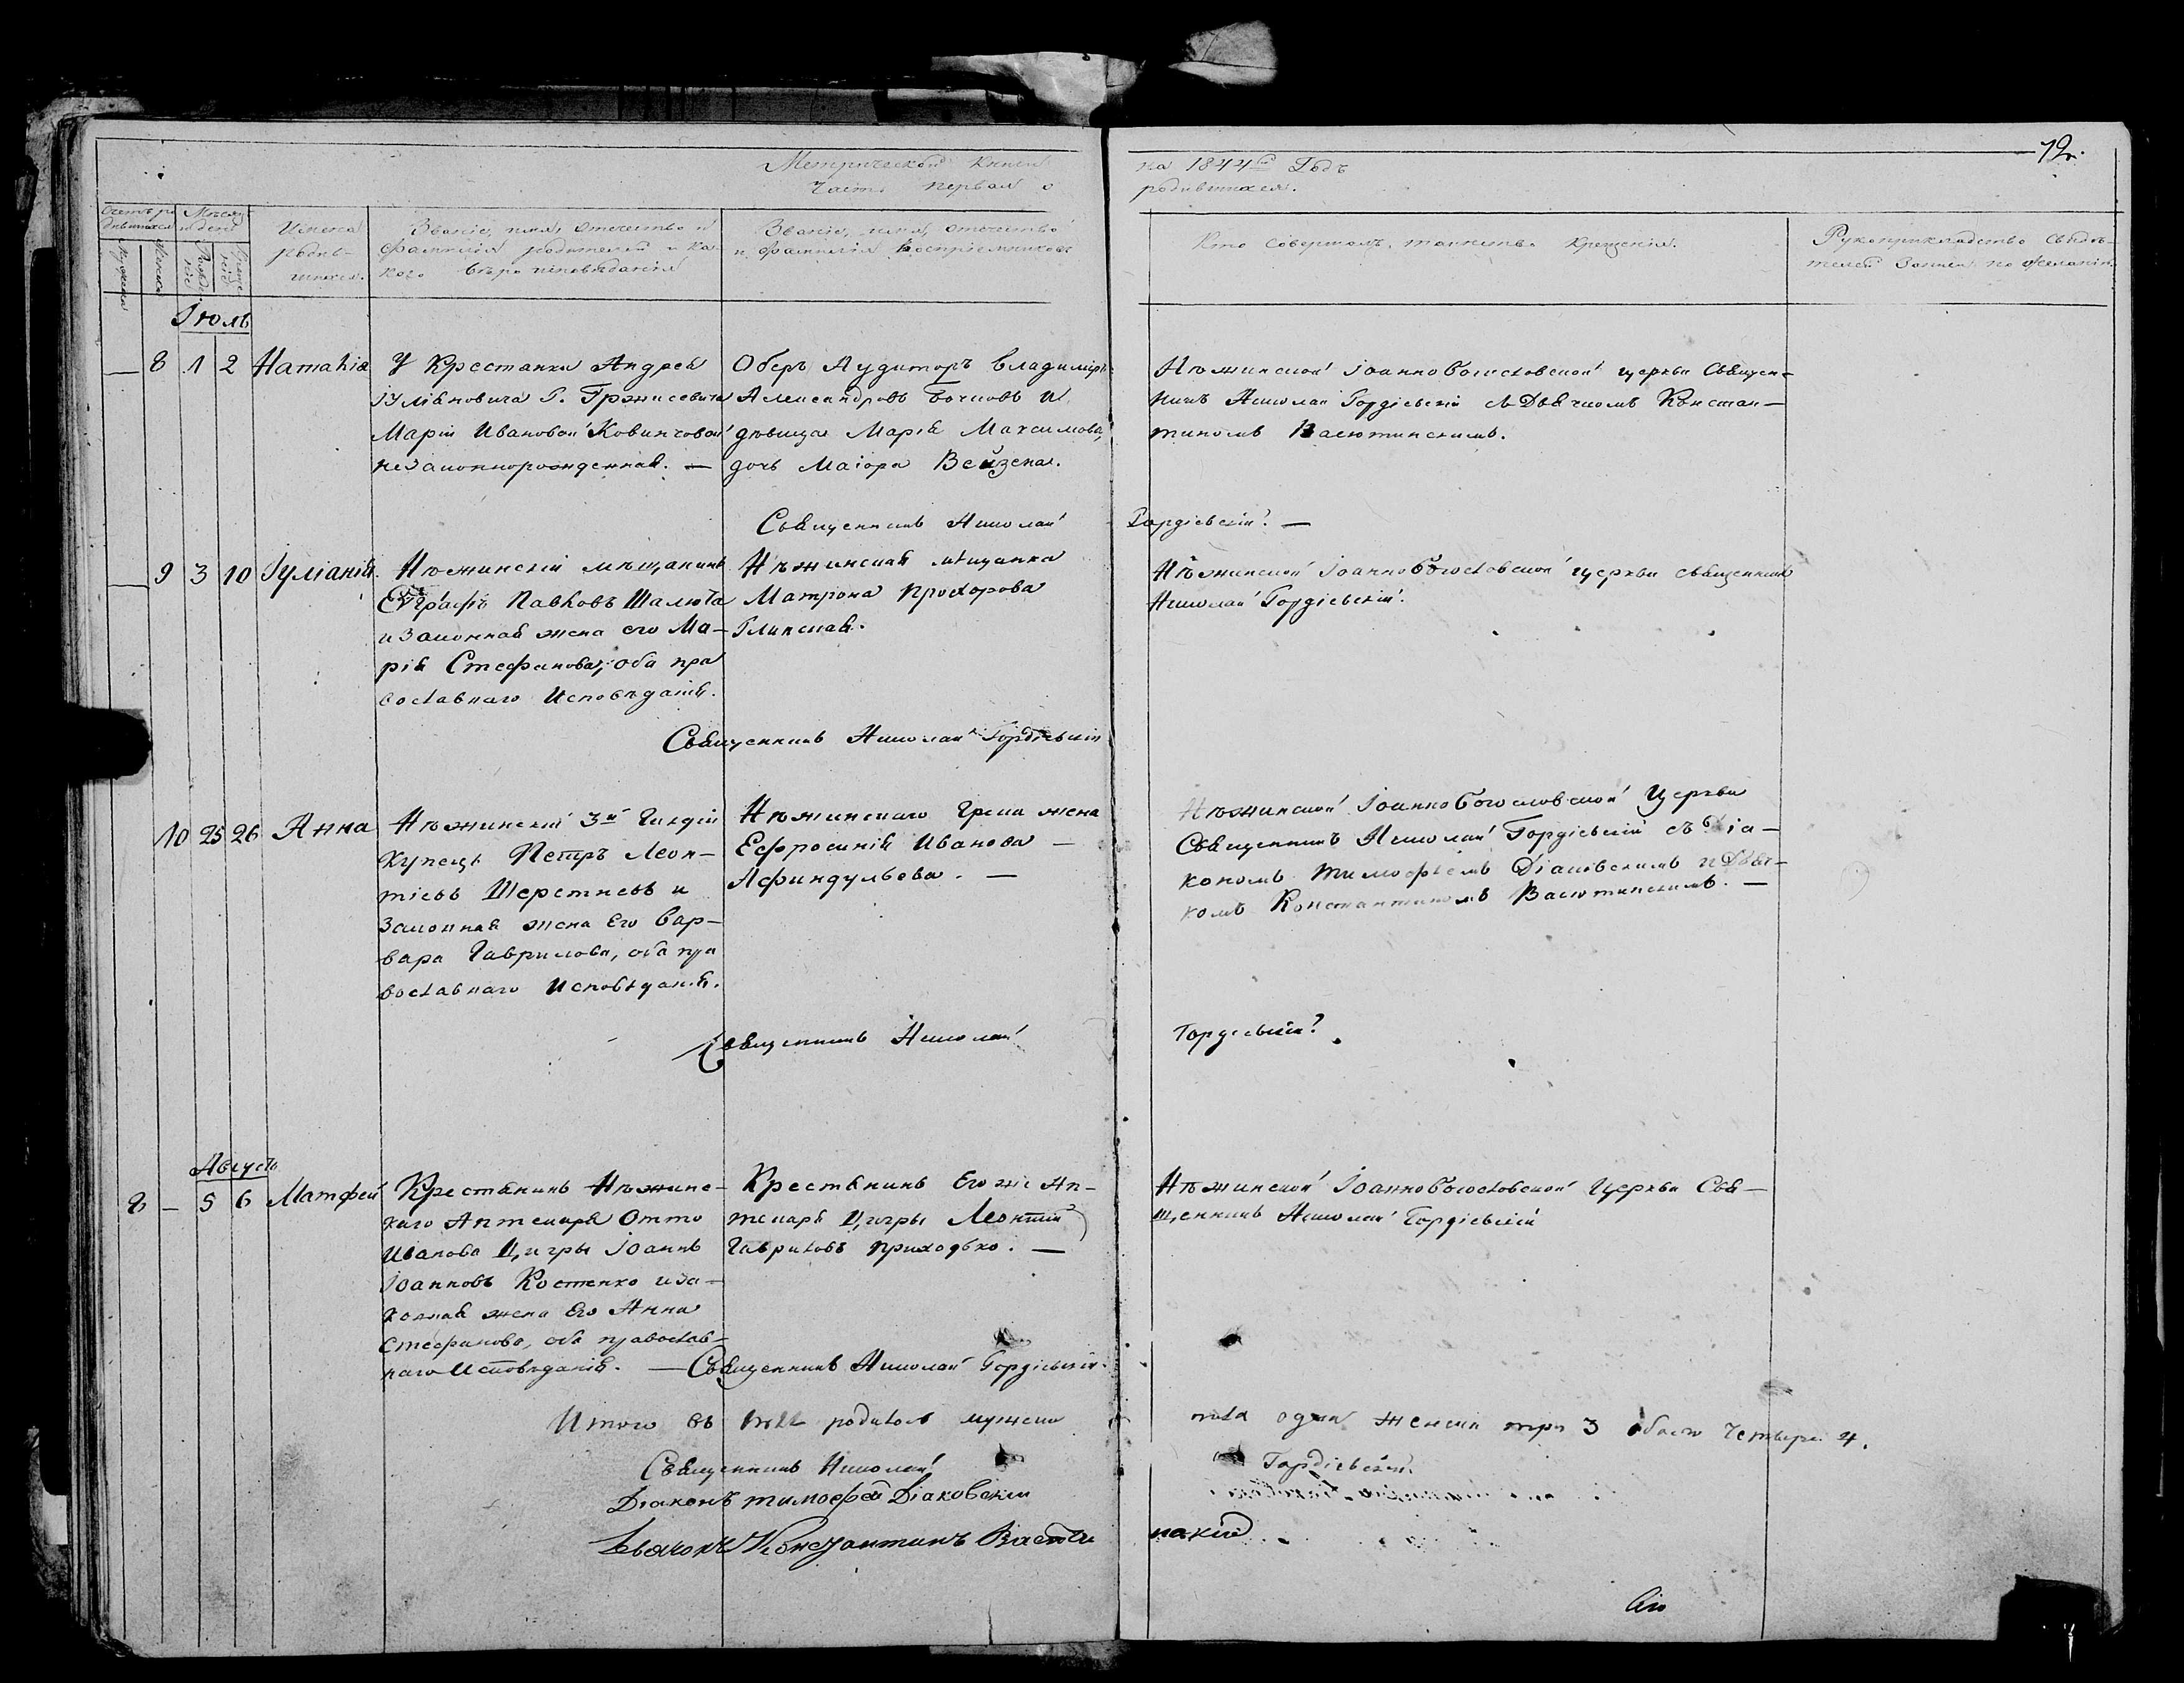 Метрической книги
на 1844й Годъ
12.
часть первая о
родившихся.
Счетъ ро
дившихся
Мѣсяцъ
и день
Имена
родив-
шихся.
Званіе, имя, отечество и
фамилія родителей и ка-
кого вѣроисповѣданія
Званіе, имя, отечество
и фамилія воспріемниковъ
Кто совершалъ таинство крещенія.
Рукоприкладство свидѣ-
телей записи по желанію.
Іюль
— 8 1 2 Наталія
У Крестянки Андрея
Іуліановича Г. Гржисевича
Маріи Ивановой Ковинчовой
незаконнорожденная. —
Оберъ Аудиторъ Владиміръ
Александровъ Бочковъ и
дѣвица Марія Максимова,
дочь Маіора Вейзена.
Нѣжинской Іоанно Богословской церкви Священ-
никъ Николай Гордіевскій съ Дьячкомъ Констан-
тиномъ Васютинскимъ.
Священникъ Николай
Гордіевскій. —
— 9 3 10 Іуліанія.
Нѣжинскій мѣщанинъ
Евграфъ Павловъ Шалюта
и законная жена его Ма-
рія Стефанова, оба пра
вославнаго Исповѣданія.
Нѣжинская мѣщанка
Матрона Прохорова
Глинская.
Нѣжинской Іоанно Богословской церкви священникъ
Николай Гордіевскій.
Священникъ Николай Гордіевскій
10 25 26 Анна
Нѣжинскій 3й Гилдіи
Купецъ Петръ Леон-
тіевъ Шерстневъ и
Законная жена Его Вар-
вара Гаврилова, оба пра
вославнаго Исповѣданія.
Нѣжинскаго Грека жена
Ефросинія Иванова —
Афиндульева. —
Нѣжинской Іоанно Богословской Церкви
Священникъ Николай Гордіевскій съ Діа-
кономъ Тимофѣемъ Діаковскимъ и Дьяч-
комъ Константиномъ Васютинскимъ. —
Священникъ Николай
Гордіевскій.
Августъ
8 — 5 6 Матфей
Крестянинъ Нѣжинс-
каго Аптекаря Отто
Иванова Цигры Іоаннъ
Іоанновъ Костенко и за-
конная жена Его Анна
Стефанова, оба православ-
наго Исповѣданія. —
Крестянинъ Его же Ап-
текаря Цигры Леонтій
Гавриловъ Приходько. —
Нѣжинской Іоанно Богословской Церкви Свя-
щенникъ Николай Гордіевскій
Священникъ Николай Гордіевскій.
Итого въ родилось мужеска
пола одинъ женска три 3 обаего четыре 4.
Священникъ Николай
Гордіевскій.
Діаконъ Тимофей Діаковскій
Дьячокъ Константинъ Васюти
нскій